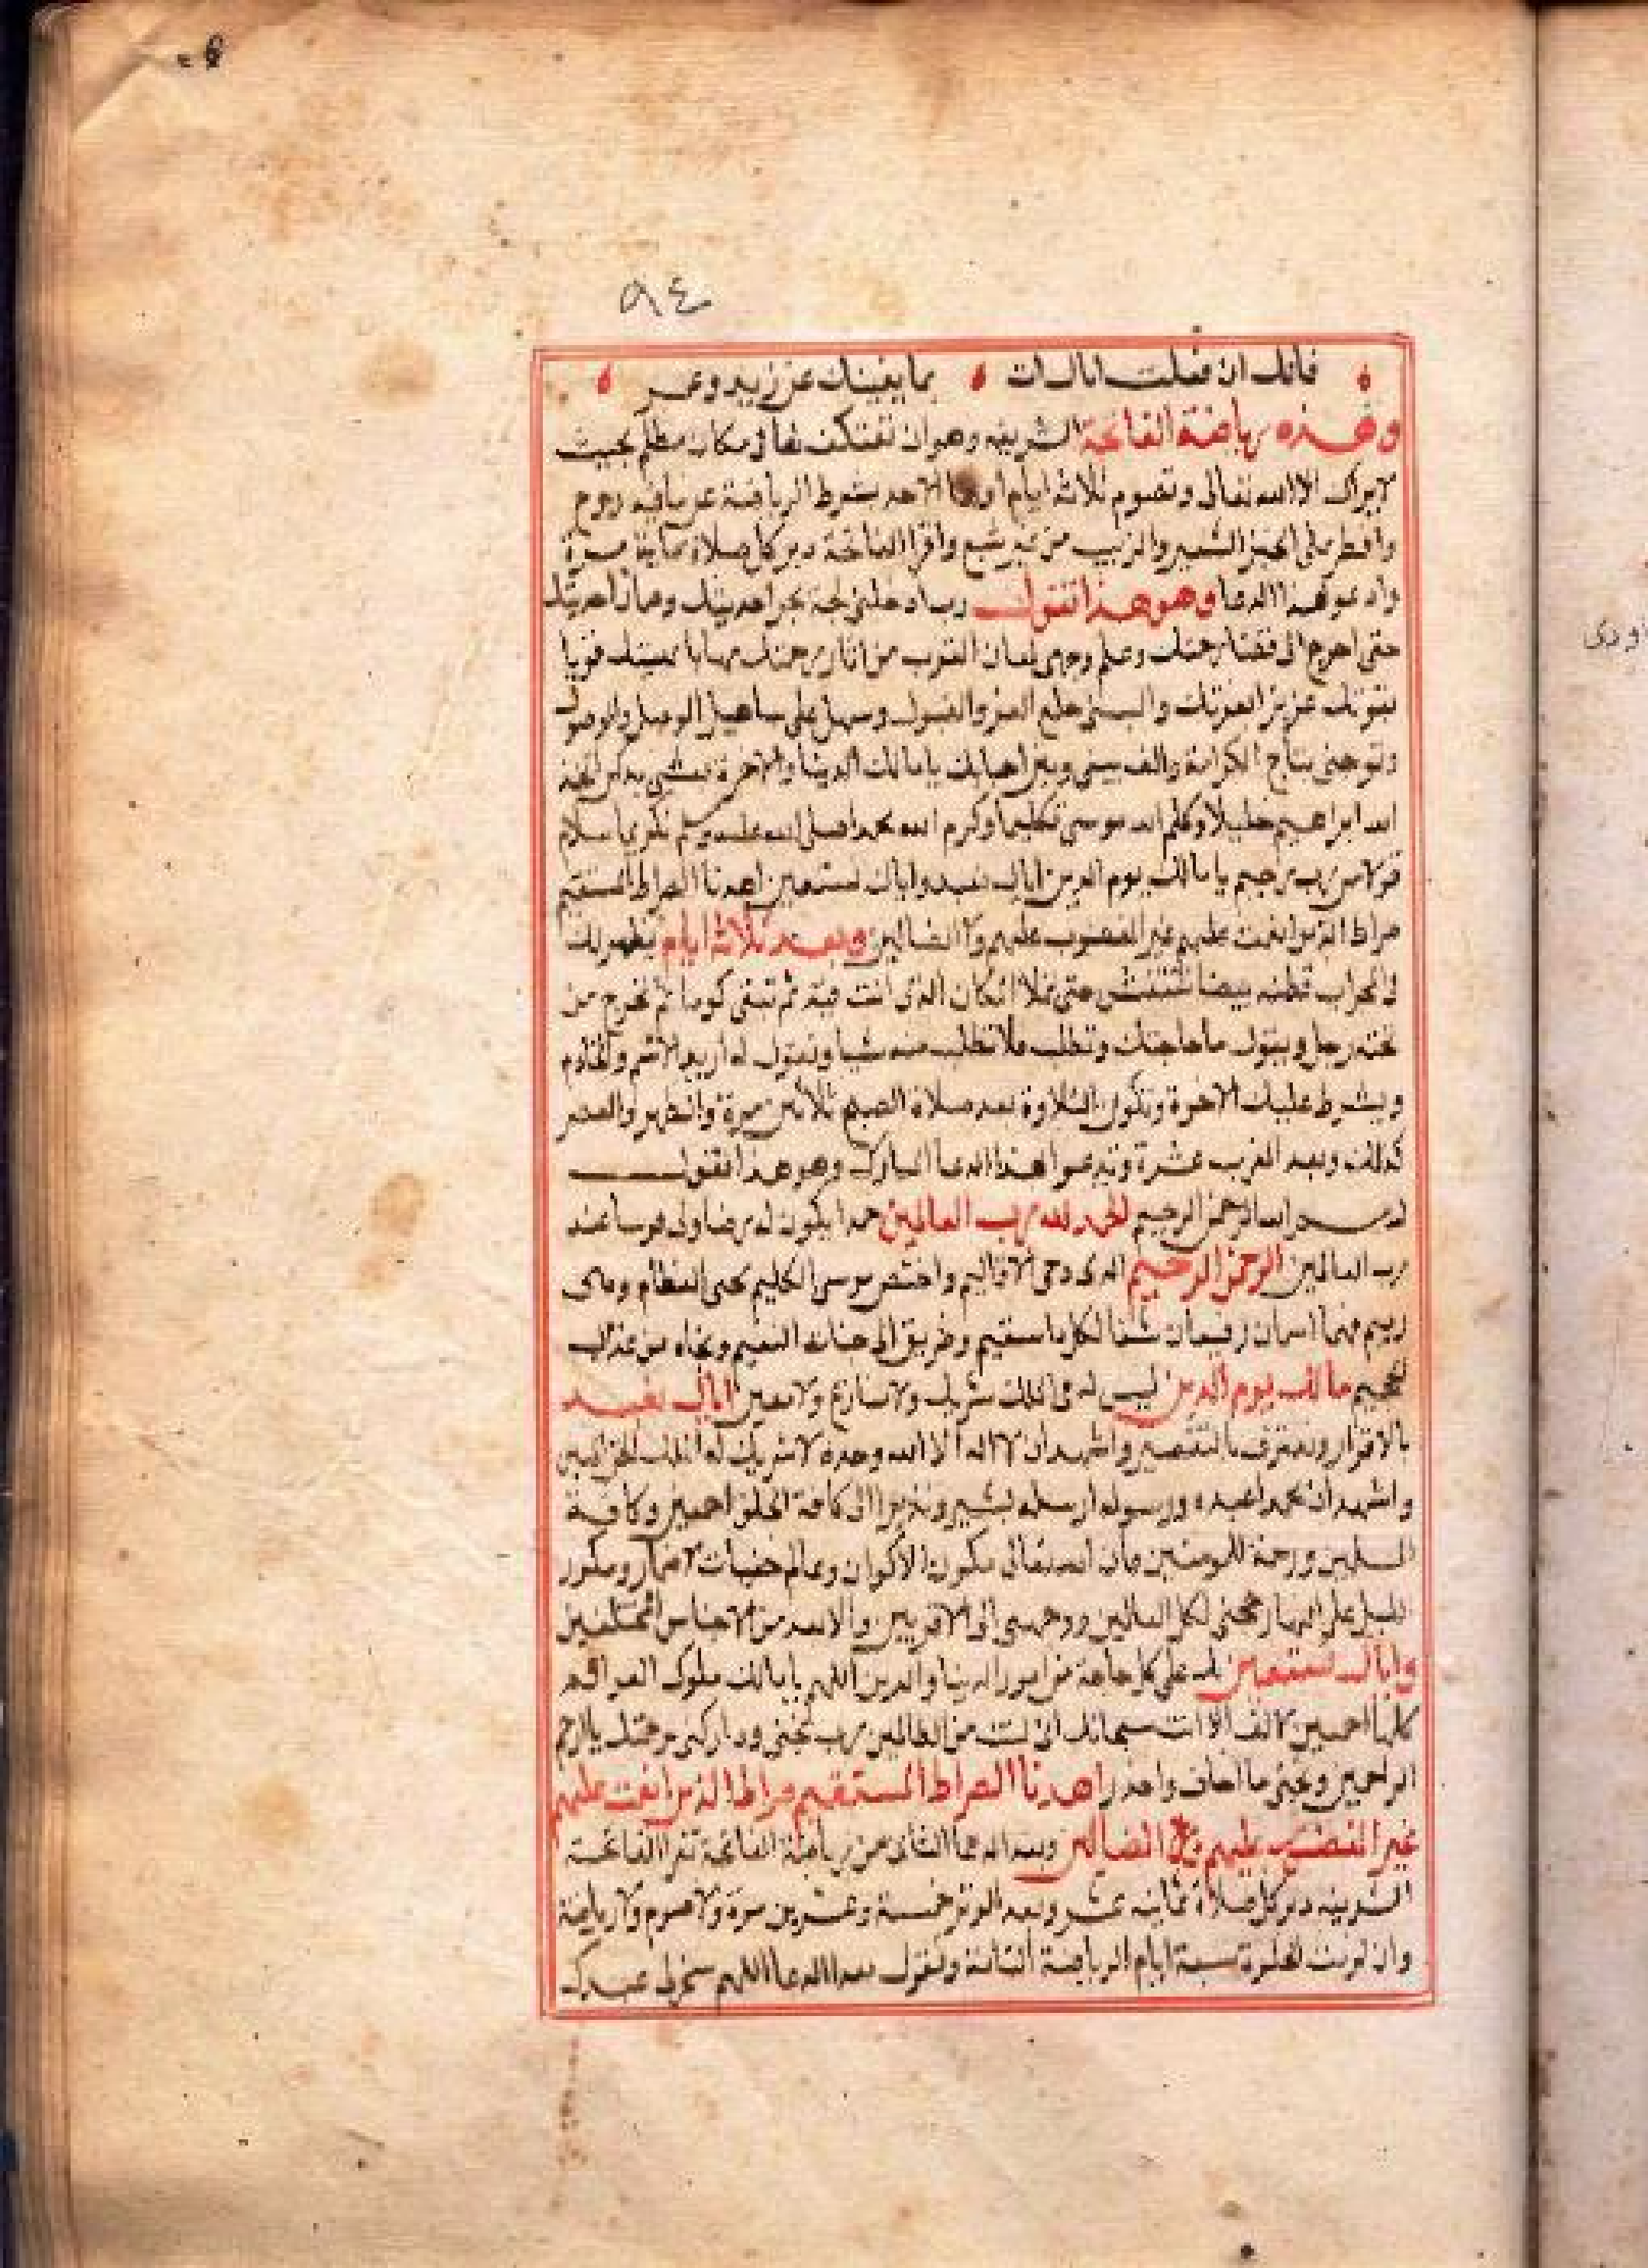 ٩٤
فانك ان فعلت اتاك ات بما يغنيك عن زيد وعمر
وهذه رياضة الفاتحة الشريفه وهو ان تعتكف لها في مكان مظلم بحيث
لا يراك الا الله تعالى وتصوم ثلاثة ايام اولها الاحد بشرط الرياضة عن ما فيه روح
وافطر على الخبز الشعير والزبيب من غير شبع واقرا الفاتحة دبر كل صلاة مرة
وادعو بهذا الدعا وهو هذا تقول رب ادخلني لجة بحر احديتك
حتى اخرج الى فضا رحمتك وعلى وجهي لمعان القرب من اثار رحمتك مهابا بهيبتك قويا
بقوتك عزيز العزتك والبسني خلع العز والقبول وسهل علي مناهيل الوصل والوصول
وتوجني بتاج الكرامة والف بيني وبين احبابك يا مالك الدنيا والاخرة
الله ابراهيم خليلا وكلم الله موسى تكليما وكرم الله محمدا صلى الله عليه وسلم تكريما سلام
قولا من رب رحيم يا مالك يوم الدين اياك نعبد واياك نستعين اهدنا الصراط المستقيم
صراط الذين انعمت عليهم غير المغضوب عليهم ولا الضالين وبعد ثلاثة ايام يظهر لك
في المحراب قطنه بيضا تنتفش حتى تملا المكان الذي انت فيه ثم تبقى كوما ثم تخرج من
تحته رجل ويقول ما حاجتك وتطلب فلا تطلب منه شيا وتقول له اريد الاسم والخادم
ويشرط عليك الاخوة وتكون التلاوة بعد صلاة الصبح ثلاثين مرة والظهر والعصر
كذلك وبعد المغرب عشرة وتدعوا هذا الدعا المبارك وهو هذا تقول
بسم الله الرحمن الرحيم الحمد لله رب العالمين حمدا يكون له رضا عند
رب العالمين الرحمن الرحيم الذي دحى الاقاليم واختص موسى الكليم محيى العظام وهي
رميم فهما اسمان رفيعان شفا لكل سقيم وطريق الى جنات النعيم ونجاه من عذاب
الجحيم مالك يوم الدين ليس له في الملك شريك ولا منازع ولا معين اياك نعبد
بالاقرار ونعترف بالتقصير واشهد ان لا اله الا الله وحده لا شريك له الملك الحق المبين
واشهد ان محمدا عبده ورسوله ارسله بشير ونذيرا الى كافة الخلق اجمعين وكافة
المسلمين ورحمة للمومنين مكون الاكوان وعالم خفيات الاضمار ومكور
الليل على النهار لكل العالمين الى الاقربين والابعد من الاجناس المختلفين
واياك نستعين بك على كل حاجة من امور الدنيا والدين اللهم يا مالك ملوك
كلها اجمعين لا اله الا انت سبحانك اني كنت من الظالمين رب نجني وداركني برحمتك يا ارحم
الراحمين ونجني مما اخاف واحذر اهدنا الصراط المستقيم صراط الذين انعمت عليهم
غير المغضوب عليهم ولا الضالين وبعد الدعا الثاني من رياضة الفاتحة تقرا الفاتحة
الشريفه دبر كل صلاة ثمانيه عشر وبعد الوتر خمسة وعشرين مرة ولا صوم ولا رياضة
وان لزمت الخلوة سبعة ايام الرياضة الثالثة وتقول هذا الدعا اللهم سخرلي عبدك